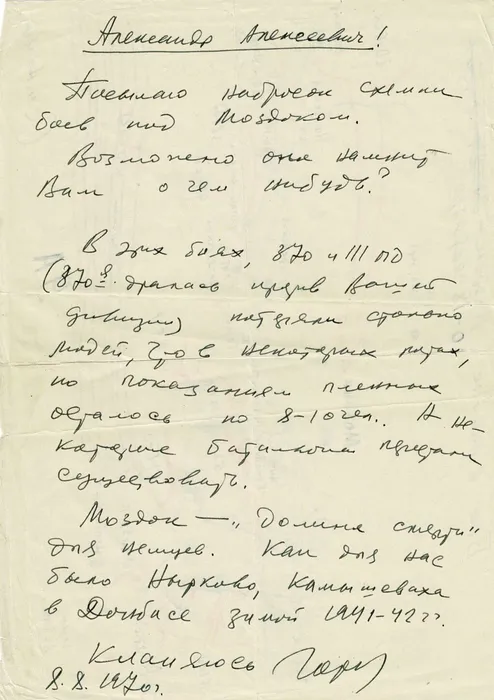 Александр Алексеевич!
Посылаю набросок схемки
боев под Моздоком.
Возможно она напомнит
Вам о чем нибудь?
В этих боях, 370 и III ПД
(370я дралась против Вашей
дивизии) потеряли столько
людей, что в некоторых ротах,
по показаниям пленных
осталось по 8-10 чел.. А не-
которые батальоны перестали
существовать.
Моздок — "Долина смерти"
для немцев. Как для нас
было Нырково, Камышеваха
в Донбасе зимой 1941-42 гг.
Кланяюсь
8.8.1970г.